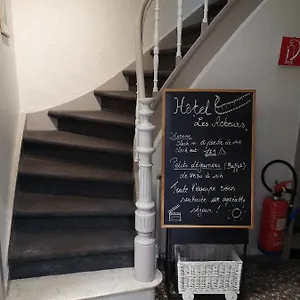 Hôtel
Les Acteurs
Horaire
Check in à partir de 15h
Check out : 11h
Petits déjeuners (Buffet)
de 7h30 à 10h
Toute l'équipe vous
souhaite un agréable
séjour !